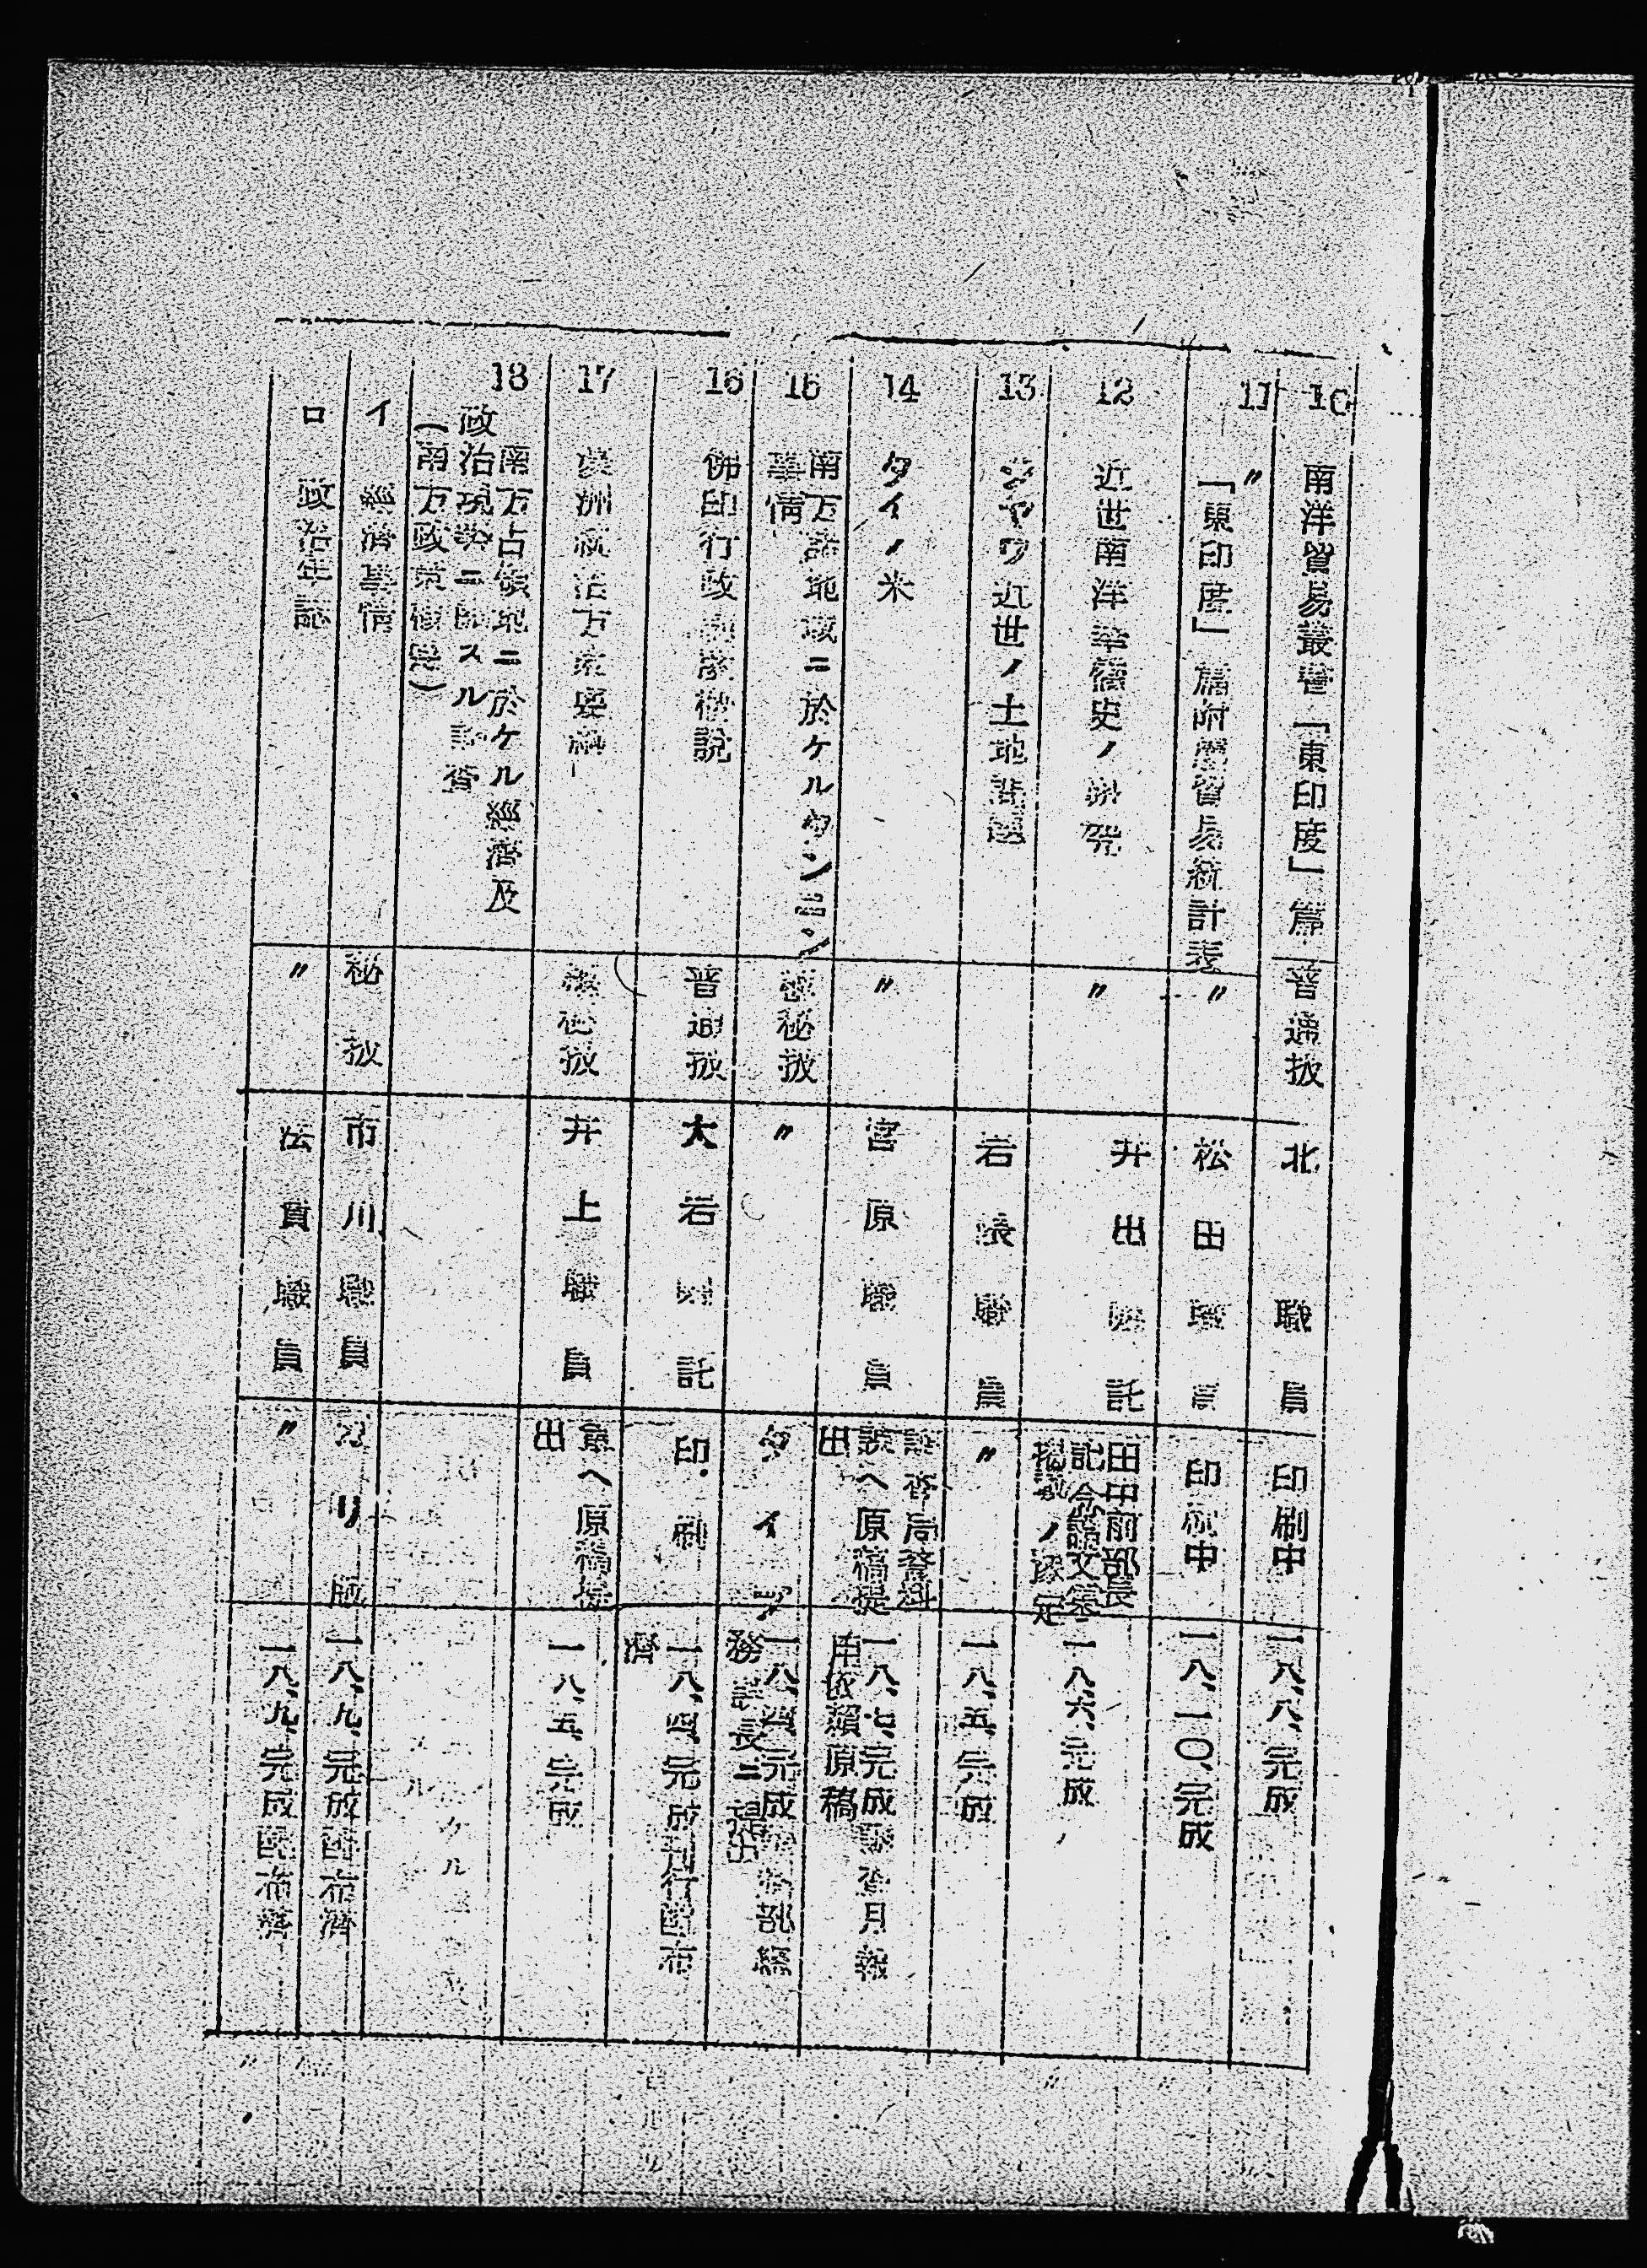 10 南洋貿易叢書「東印度」篇 普通扱 北職員 印刷中 一八、八、完成
11 〃「東印度」篇附属貿易統計表 〃 松田職員 印刷中 一八、一〇、完成
12 近世南洋華僑史ノ 〃 井出嘱託 田中前部長記念論文集掲載ノ予定 一八、六、完成
13 ジヤワ近世ノ土地制度 岩 職員 〃 一八、五、完成
14 タイノ米 〃 宮原職員 調査局資料課ヘ原稿提出 一八、七、完成調査月報用依頼原稿
15 南方諸地域ニ於ケルタンニン事情 極秘扱 〃 タイプ 一八、四、完成 部経 長ニ提出
16 佛印行政制度概説 普通扱 大岩嘱託 印刷 一八、四、完成刊行配布済
17 濠洲統治方策要綱 極秘扱 井上職員 ヘ原稿提出 一八、五、完成
18 南方占領地ニ於ケル経済及政治現勢ニ関スル調査(南方政策 )
イ 経済事情 秘扱 市川職員 ガリ版 一八、九、完成配布済
ロ 政治年誌 〃 法貴職員 〃 一八、九、完成配布済